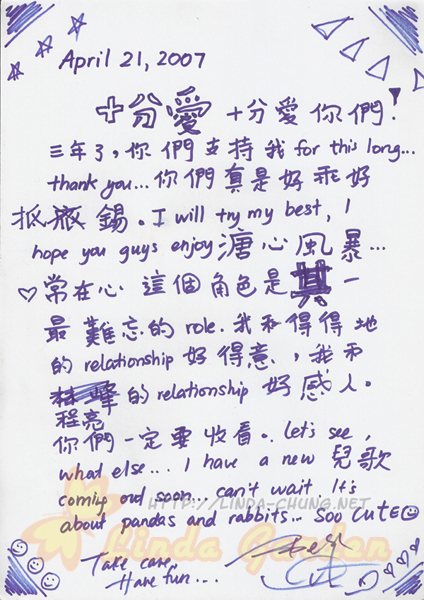 April 21, 2007
十分愛 十分愛你們!
三年了,你們支持我 for this long...
thank you... 你們真是好乖好
錫。I will try my best, I
hope you guys enjoy 溏心風暴...
♡常在心 這個角色是 一
最難忘的 role. 我和得得地
的 relationship 好得意,我和
林峰 的 relationship 好感人。
程亮
你們一定要收看。let's see,
what else... I have a new 兒歌
coming out soon... can't wait. It's
about pandas and rabbits... soo CUTE☺
HTTP://LINDA-CHUNG.NET
Linda Garden
Take care,
Have fun...